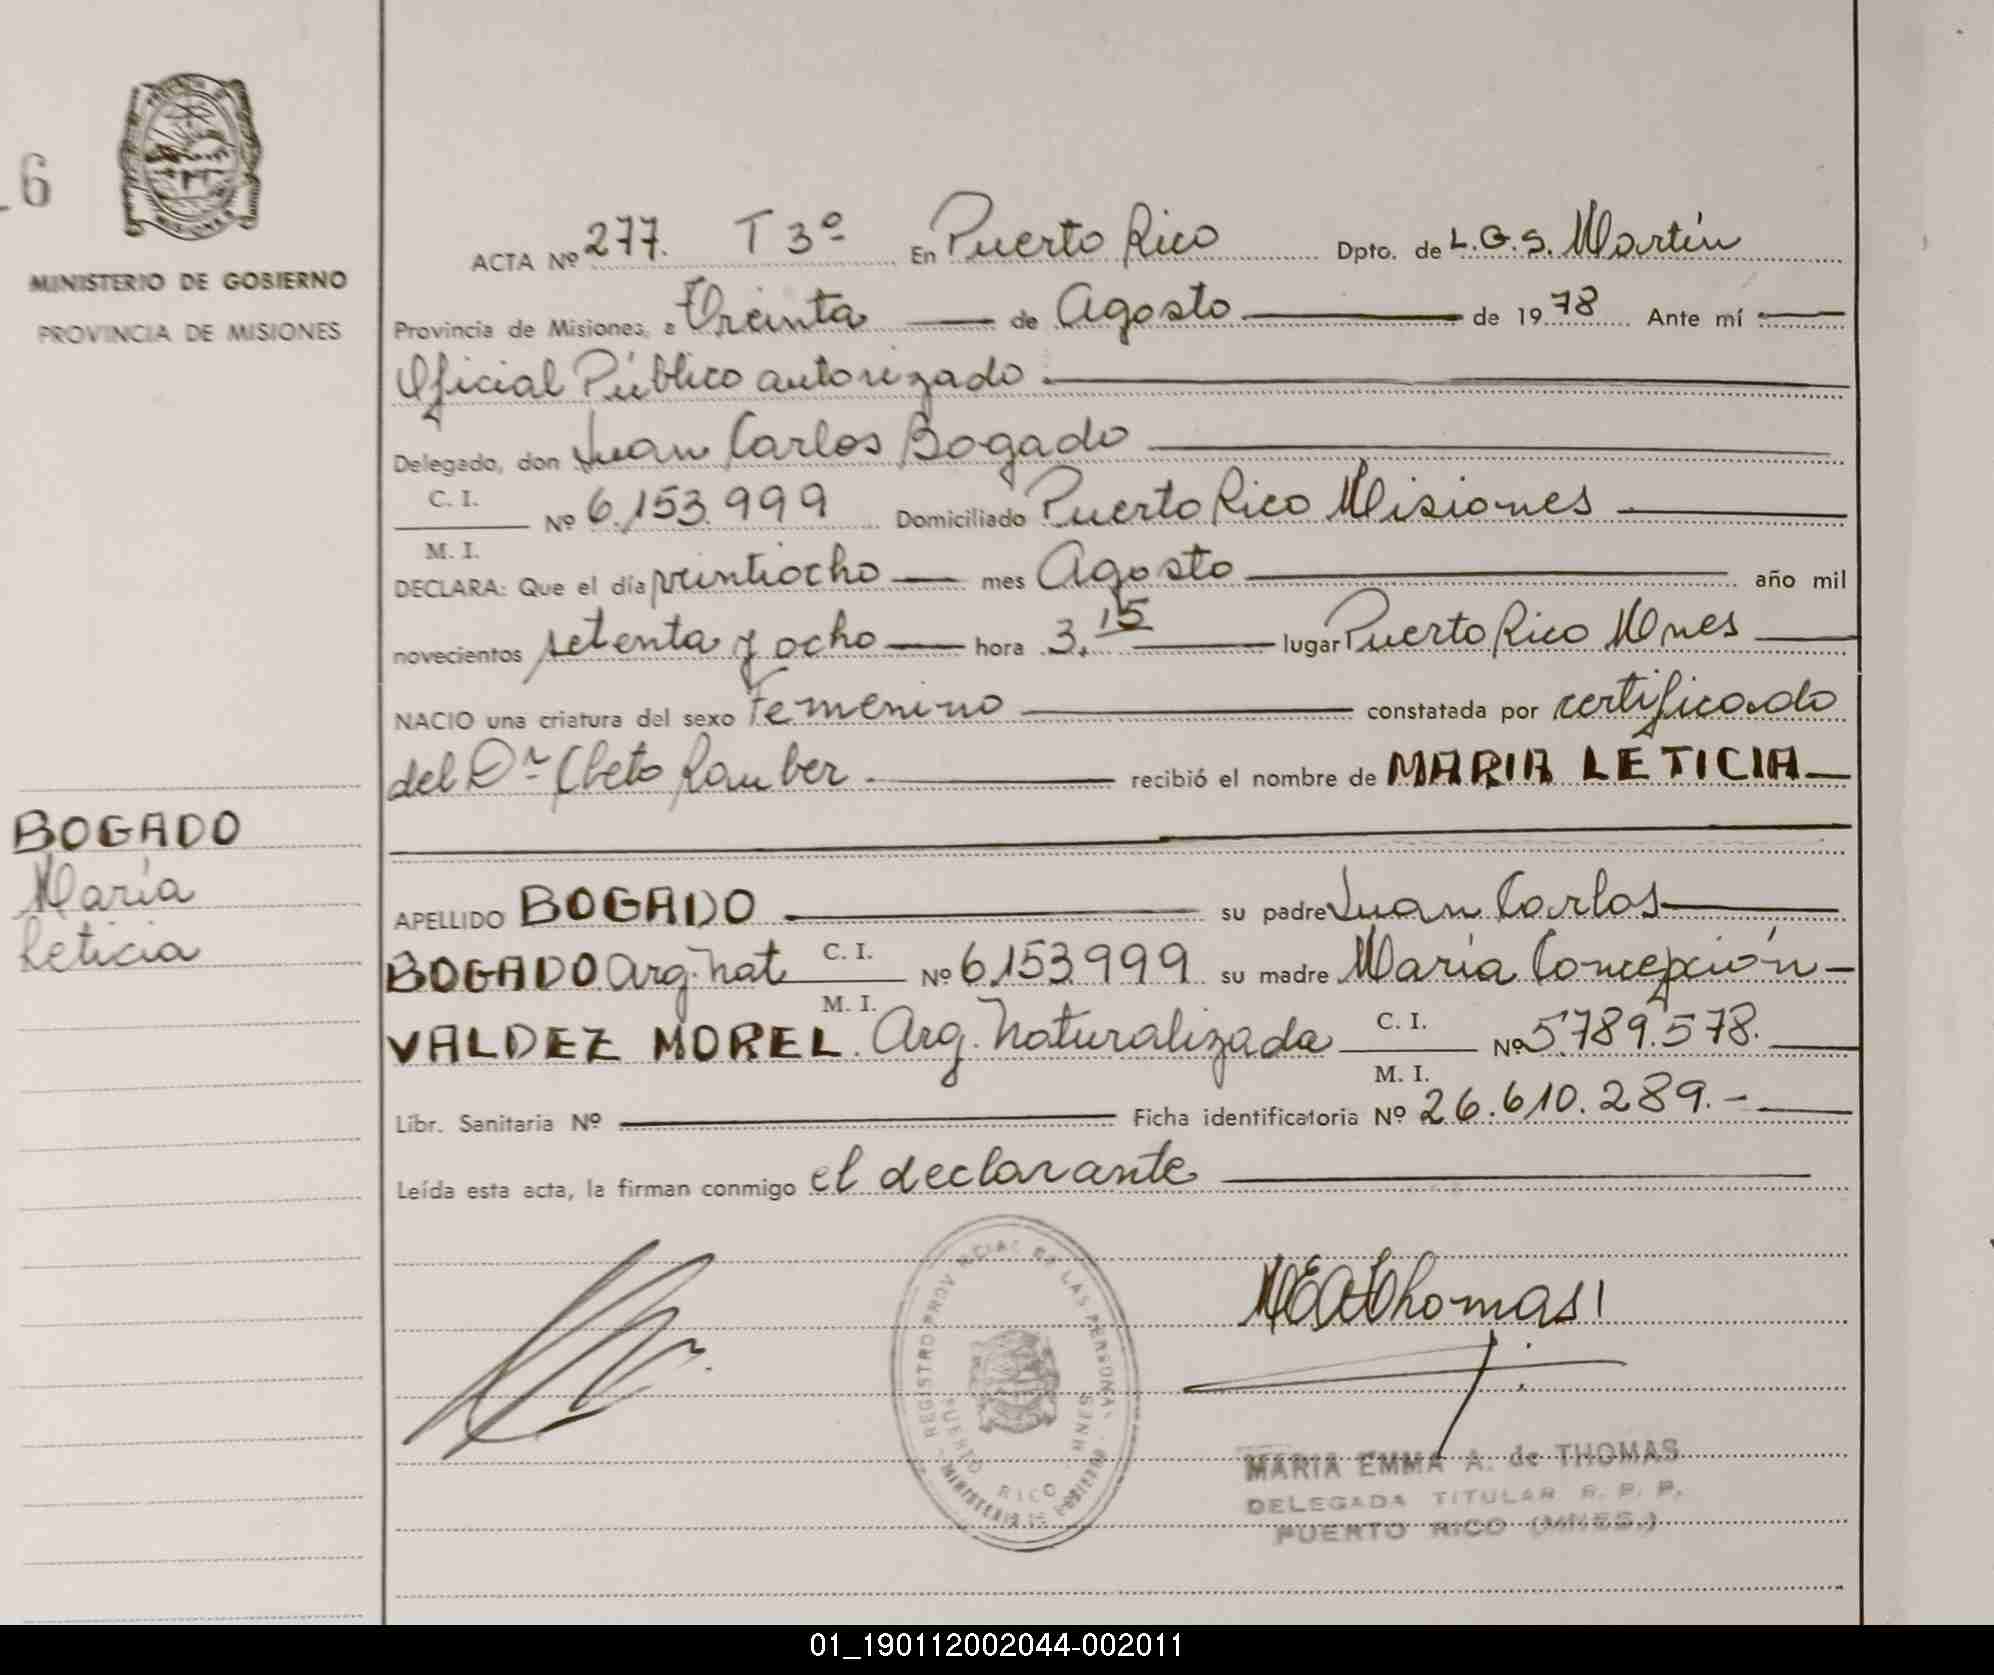 6
MINISTERIO DE GOBIERNO
PROVINCIA DE MISIONES
ACTA Nº 277. T 3º En Puerto Rico Dpto. de L.G.S. Martín
Provincia de Misiones, a Treinta de Agosto de 1978 Ante mí
Oficial Público autorizado.
Delegado, don Juan Carlos Bogado
C. I.
M. I.
Nº 6.153.999 Domiciliado Puerto Rico Misiones
DECLARA: Que el día veintiocho mes Agosto año mil
novecientos setenta y ocho hora 3.15 lugar Puerto Rico Mnes
NACIO una criatura del sexo Femenino constatada por certificado
del Dr. Cheto Rauber recibió el nombre de MARIA LETICIA
BOGADO
María
Leticia
APELLIDO BOGADO su padre Juan Carlos
BOGADO Arg. Nat C. I. M. I. Nº 6.153.999 su madre María Concepción
VALDEZ MOREL. Arg. Naturalizada C. I. M. I. Nº 5.789.578.
Libr. Sanitaria Nº Ficha identificatoria Nº 26.610.289.-
Leída esta acta, la firman conmigo el declarante
REGISTRO PROVINCIAL DE LAS PERSONAS
PUERTO RICO MNES
MEAThomas
MARIA EMMA A. de THOMAS
DELEGADA TITULAR R. P. P.
PUERTO RICO (MNES.)
01_190112002044-002011